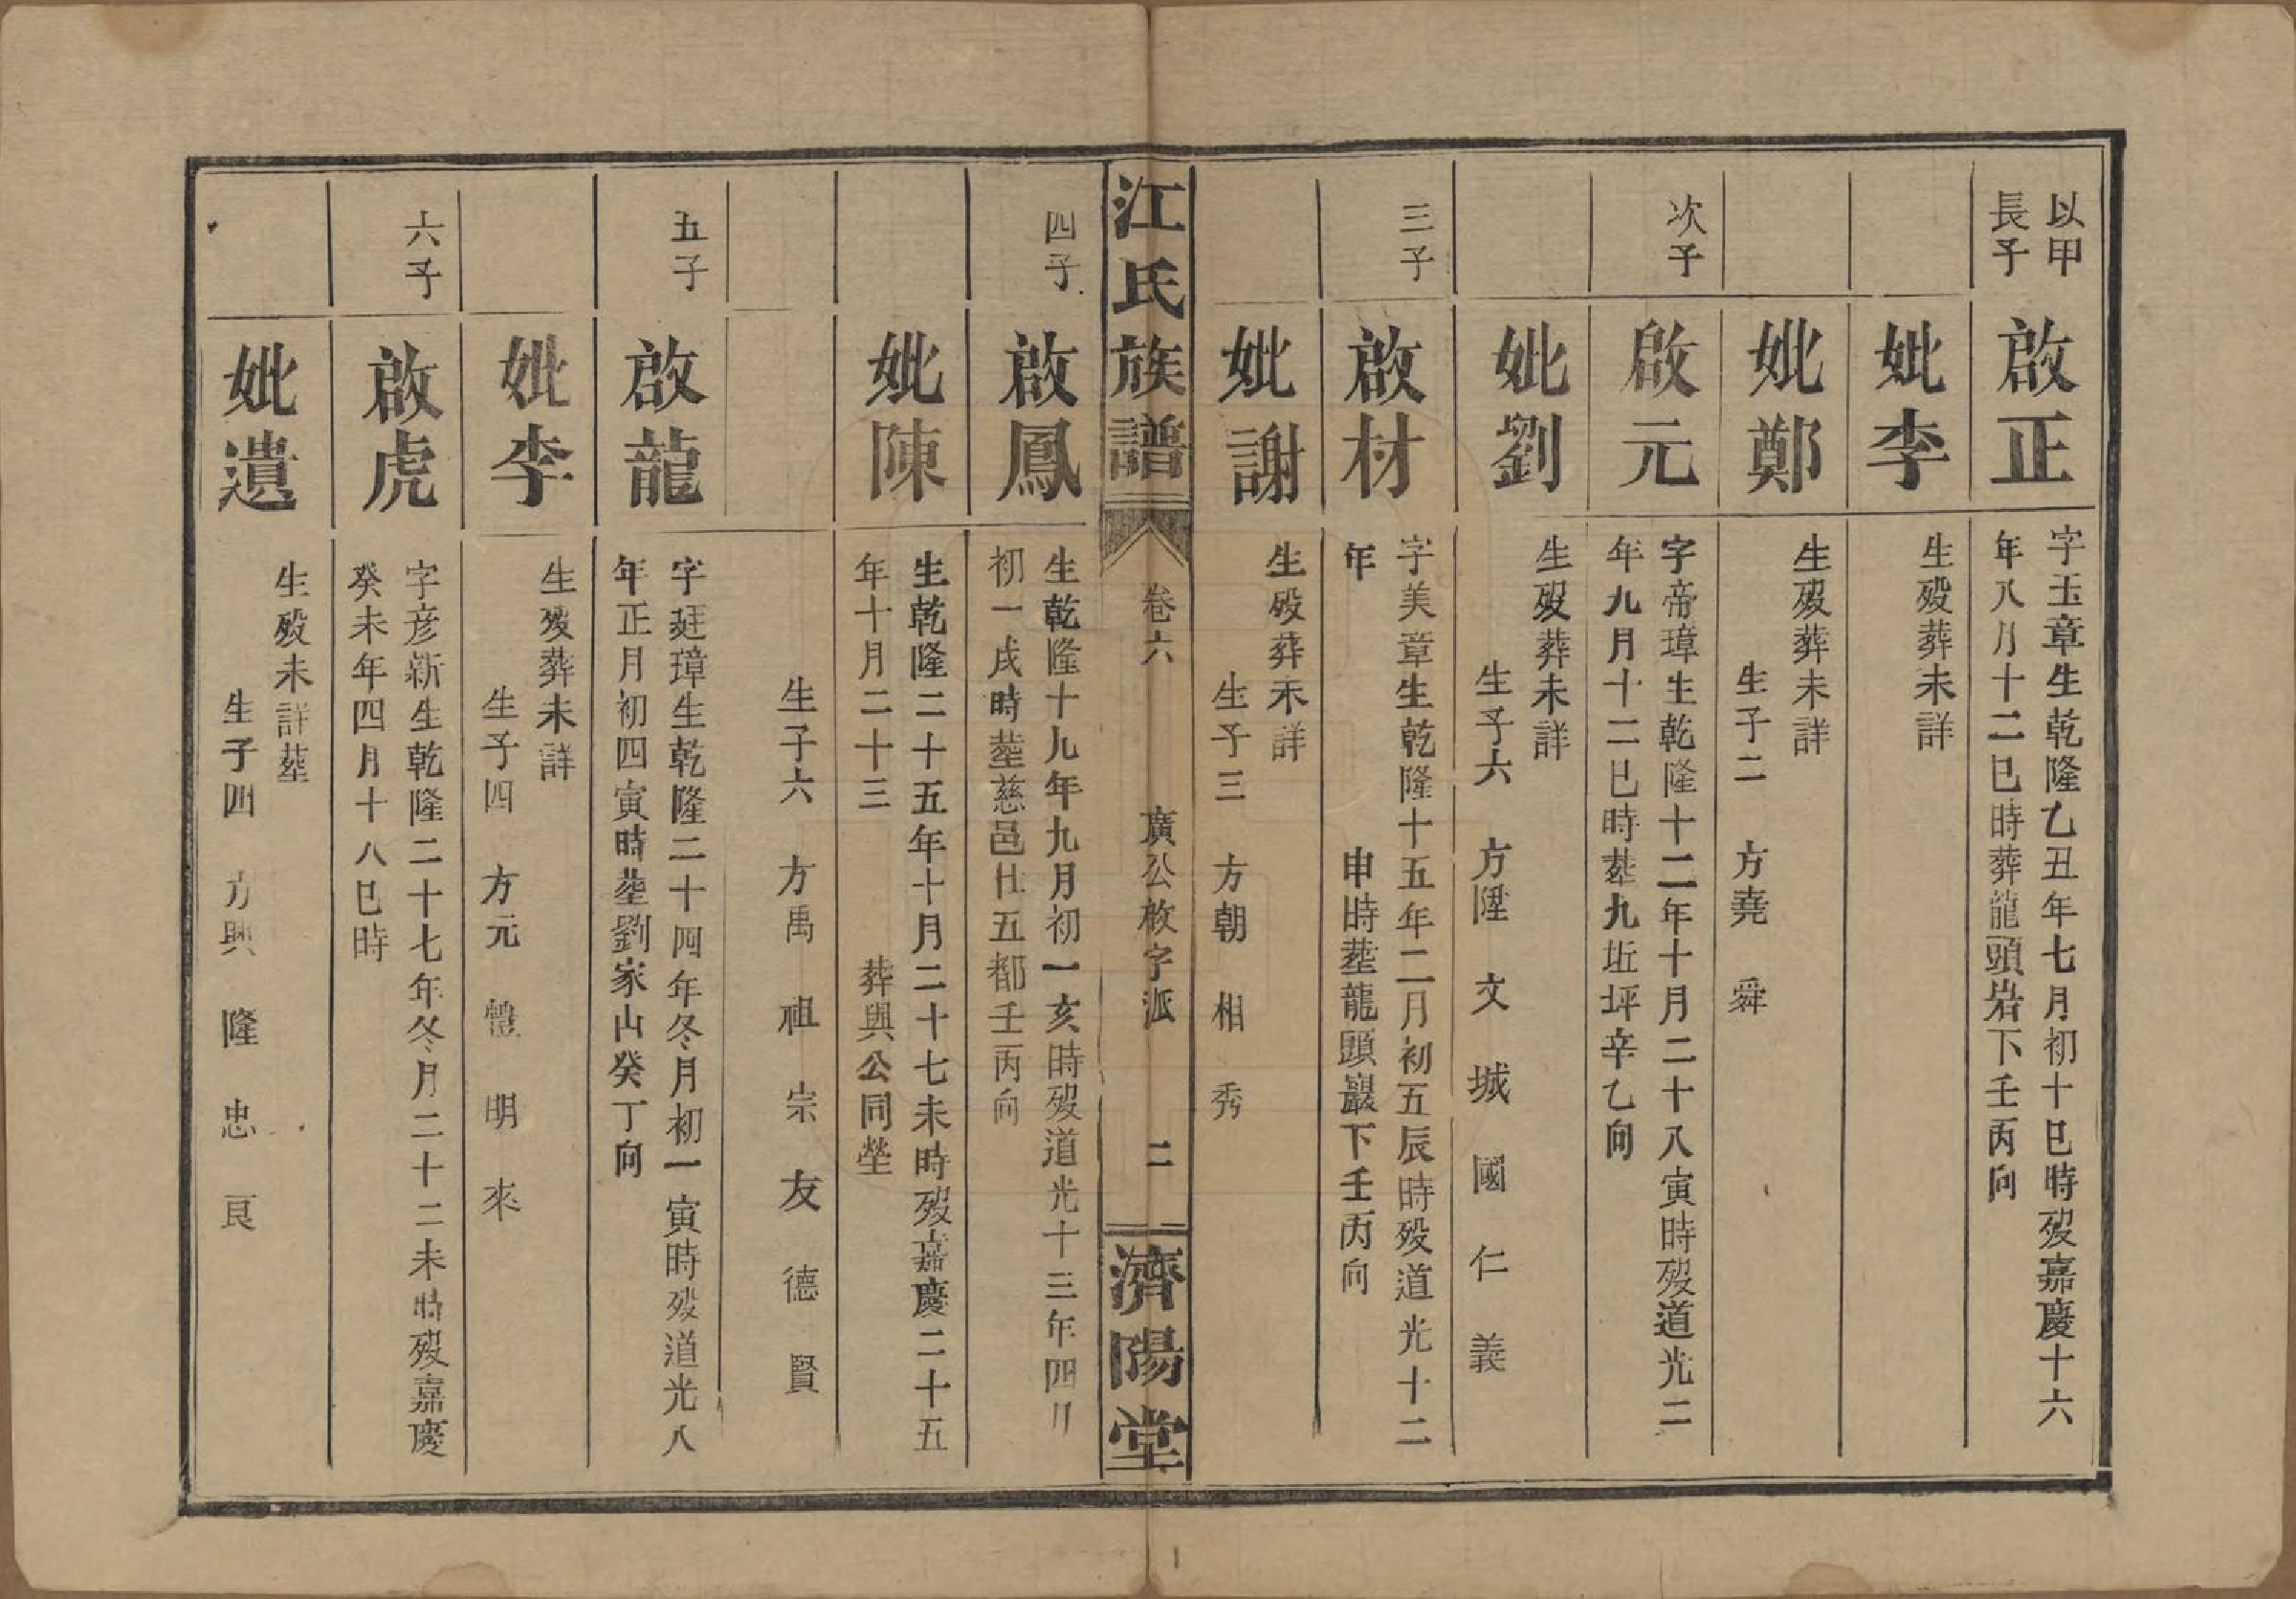 以甲
長子
啟正
字玉章生乾隆乙丑年七月初十巳時歿嘉慶十六
年八月十二巳時葬龍頭岩下壬丙向
妣李
生歿葬未詳
妣鄭
生歿葬未詳
生子二 方堯 舜
次子
啟元
字帝璋生乾隆十二年十月二十八寅時歿道光二
年九月十二巳時塟九坵坪辛乙向
妣劉
生歿葬未詳
生子六 方陞 文 城 國 仁 義
三子
啟材
字美章生乾隆十五年二月初五辰時歿道光十二
年 申時塟龍頭巖下壬丙向
妣謝
生歿葬未詳
生子三 方朝 相 秀
江氏族譜
卷六
廣公枚字派
二
濟陽堂
四子
啟鳳
生乾隆十九年九月初一亥時歿道光十三年四月
初一戌時塟慈邑廿五都壬丙向
妣陳
生乾隆二十五年十月二十七未時歿嘉慶二十五
年十月二十三 葬與公同塋
生子六 方禹 祖 宗 友 德 賢
五子
啟龍
字廷璋生乾隆二十四年冬月初一寅時歿道光八
年正月初四寅時塟劉家山癸丁向
妣李
生歿葬未詳
生子四 方元 體 明 來
六子
啟虎
字彦新生乾隆二十七年冬月二十二未時歿嘉慶
癸未年四月十八巳時
妣遺
生歿未詳塟
生子四 方興 隆 忠 良